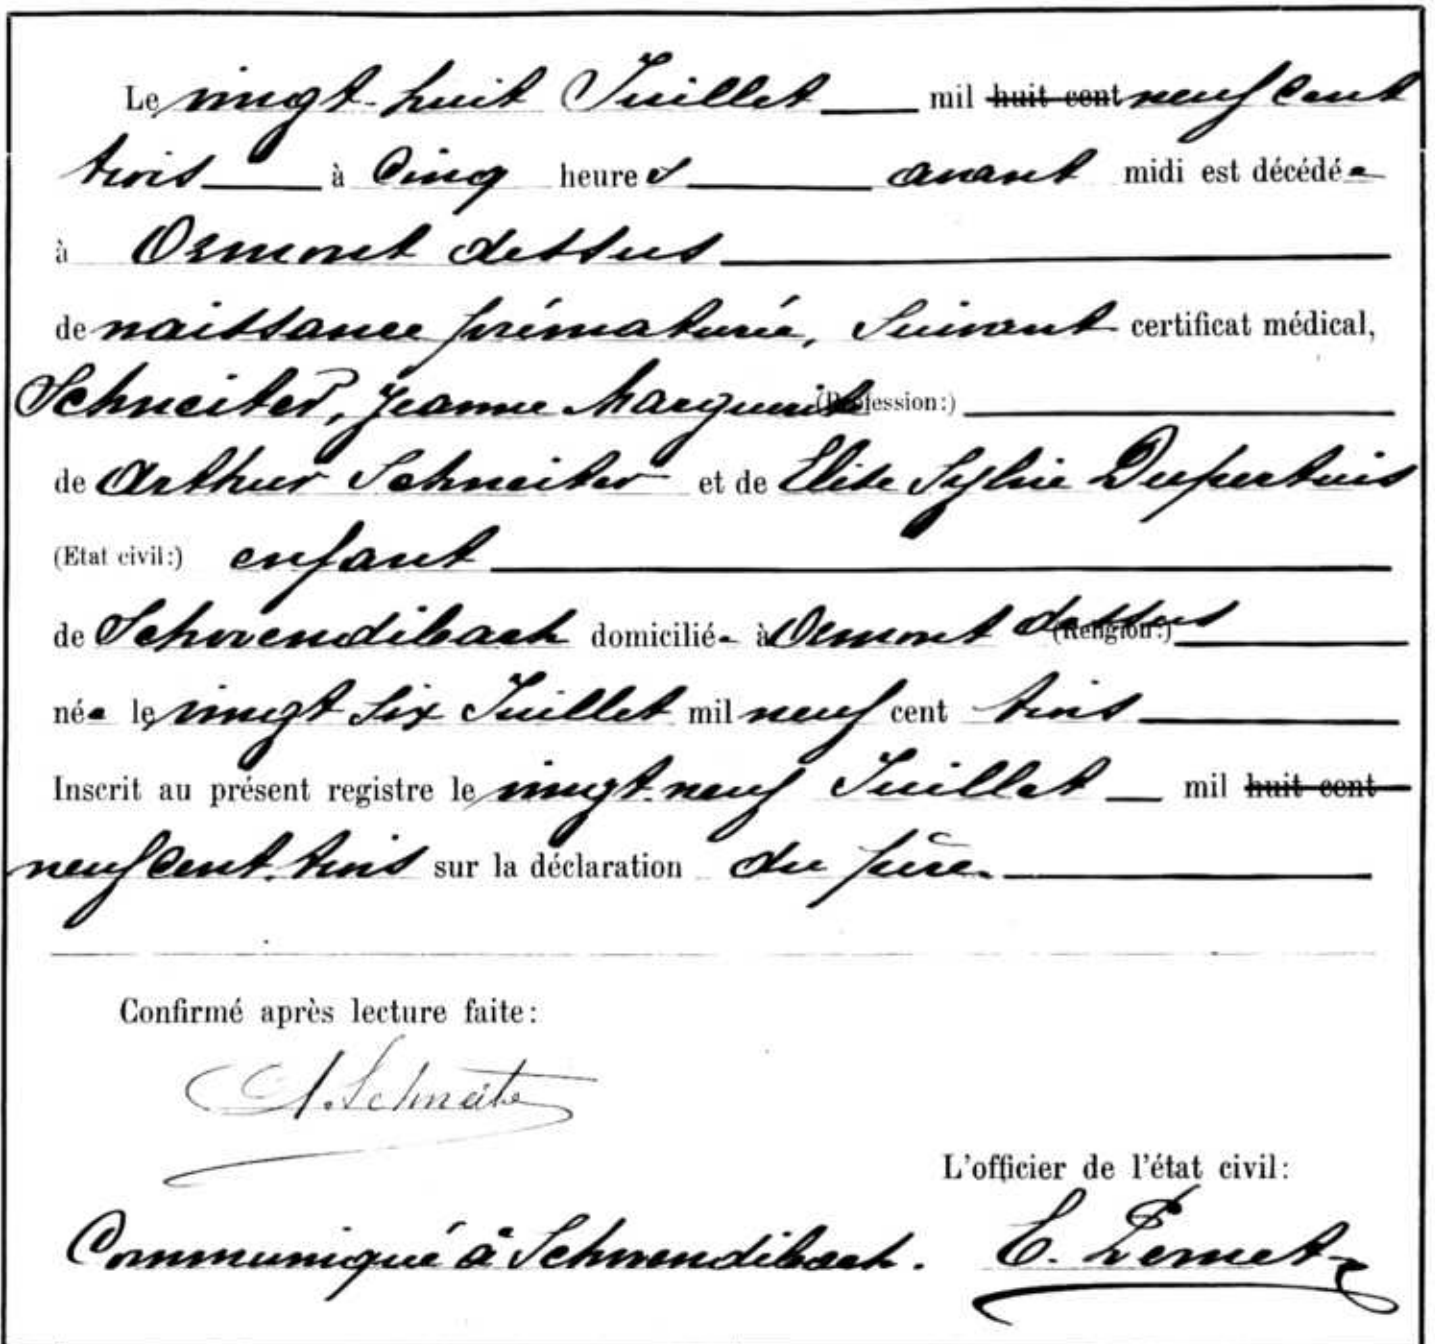 Le vingt-huit Juillet mil huit cent neuf cent
trois à Cinq heures avant midi est décédée
à Ormont dessus
de naissance prématurée, suivant certificat médical,
Schneiter, Jeanne Marguerite (Profession:)
de Arthur Schneiter et de Elise Sylvie Dupertuis
(Etat civil:) enfant
de Schwendibach domiciliée à Ormont dessus (Religion:)
née le vingt six Juillet mil neuf cent trois
Inscrit au présent registre le vingt-neuf Juillet mil huit cent
neuf cent trois sur la déclaration du père.
Confirmé après lecture faite:
A. Schneiter
L'officier de l'état civil:
Communiqué à Schwendibach. E.